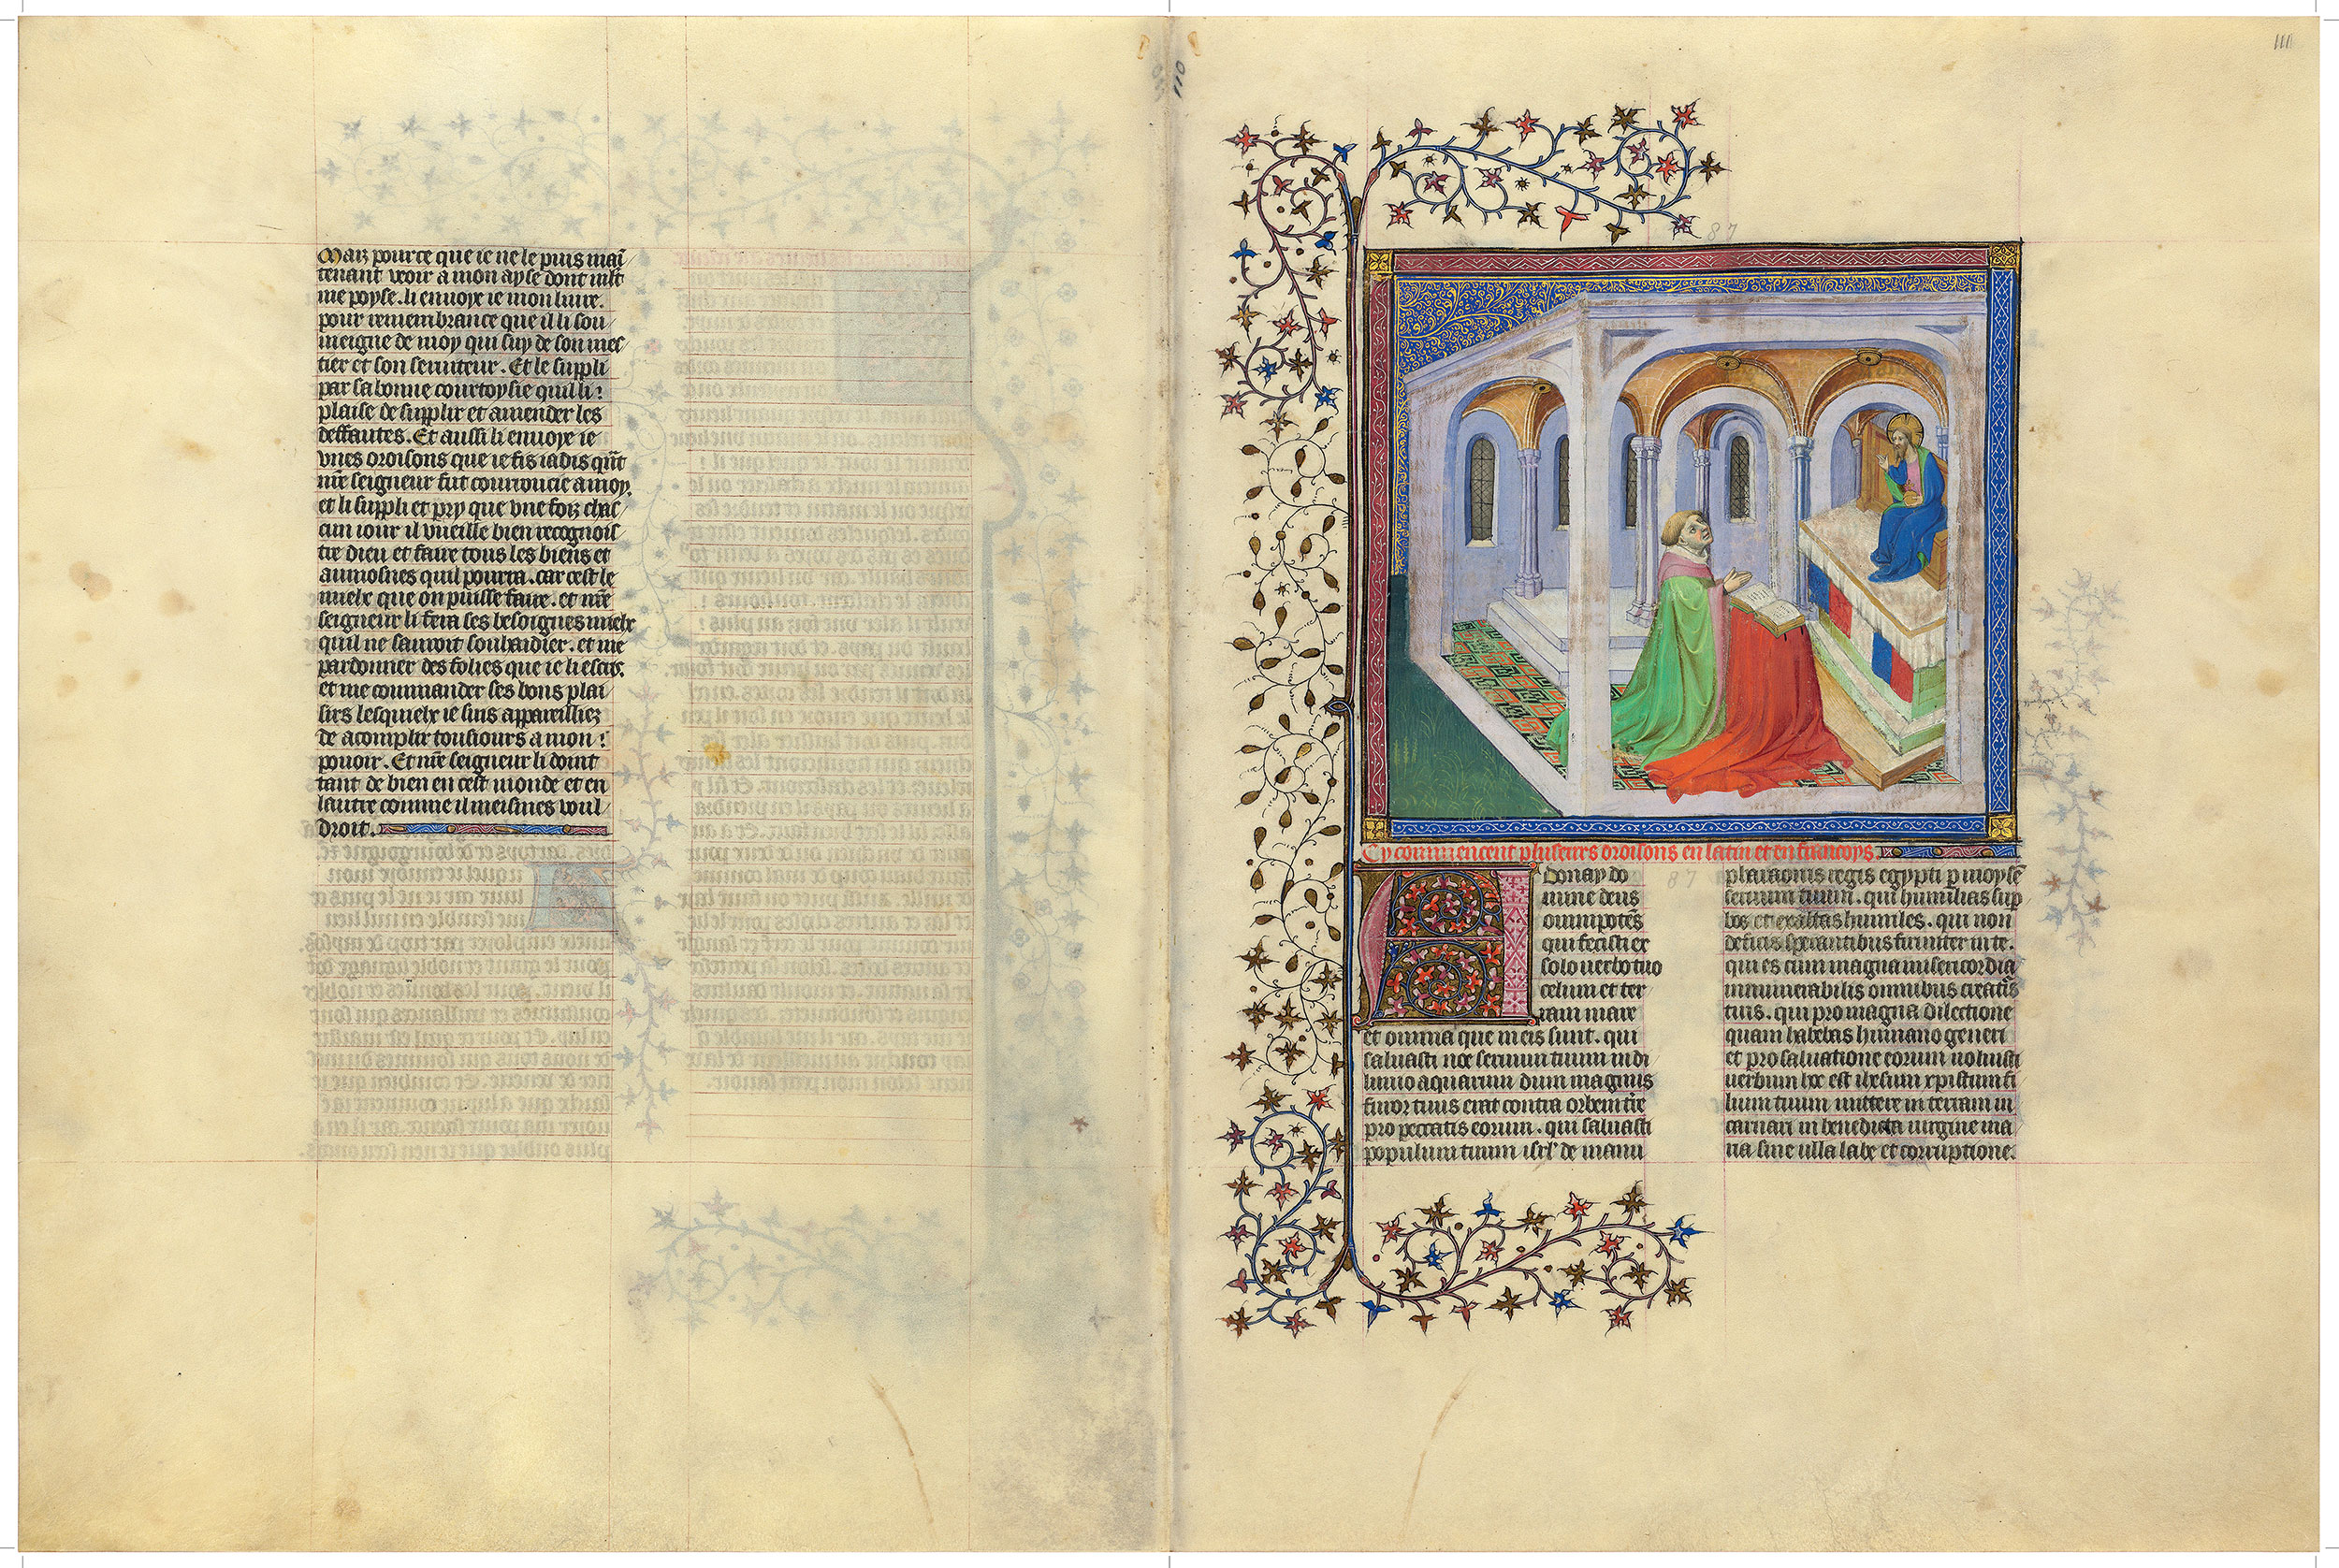 Maiz pource que ie ne le puis mai͞
tenant veoir a mon ayse dont ml͞t
me poyse. li enuoye ie mon liure.
pour remembrance que il li sou
uieigne de moy qui suy de son mes
tier et son seruiteur. Et le suppli
par sa bonne courtoysie quil li
plaise de supplir et amender les
deffautes. Et aussi li enuoye ie
vnes oroisons que ie fis iadis qn͞t
nr͞e seigneur fut courroucie a moy.
et li suppli et pry que vne foiz chas
cun iour il vueille bien recognois
tre dieu et faire tous les biens et
aumosnes quil pourra. car cest le
mielx que on puisse faire. et nr͞e
seigneur li fera ses besoignes mielx
quil ne sauroit souhaidier. et me
pardonner des folies que ie li escrs.
et me commander ses bons plai
sirs lesquielx ie suis appareilliez
de acomplir tousiours a mon
pouoir. Et nr͞e seigneur li doint
tant de bien en cest monde et en
lautre comme il meismes voul
droit.
110
111
87
Cy commencent pluseurs oroisons en latin et en francoys.
87
Adonay do
mine deus
omnipote͞s
qui fecisti ex
solo uerbo tuo
celum et ter
ram mare
et omnia que in eis sunt. qui
saluasti noe seruum tuum in di
luuio aquarum dum magnus
furor tuus erat contra orbem tr͞e
pro peccatis eorum. qui saluasti
populum tuum isrl' de manu
pharaonis regis egypti p moyse͞
seruum tuum. qui humilias sup
bos et exaltas humiles. qui non
deficis sperantibus firmiter in te.
qui es cum magna misericordia
innumerabilis omnibus creatis
tuis. qui pro magna dilectione
quam habebas humano generi
et pro saluatione eorum uoluisti
uerbum hoc est ihesum xpistum fi
lium tuum mittere in terram in
carnari in benedicta uirgine ma
ria sine ulla labe et corruptione.